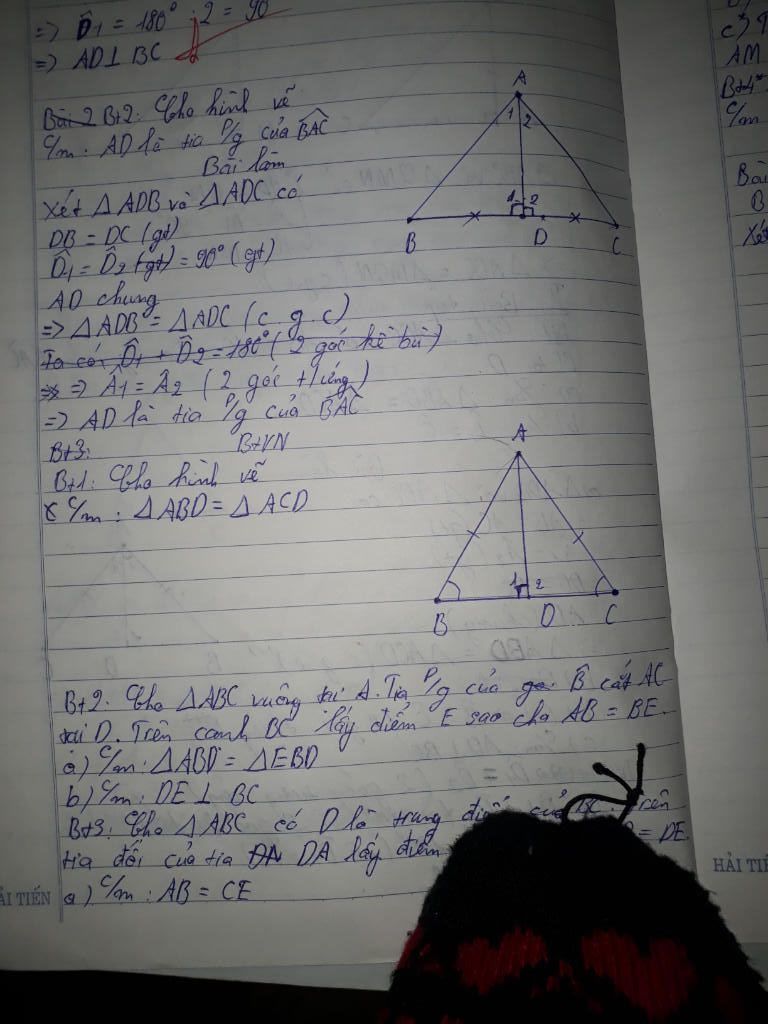 => D̂1 = 180° : 2 = 90
=> AD ⊥ BC
Bài 2 B+2: Cho hình vẽ
C/m: AD là tia p/g của BAC
Bài làm
Xét △ADB và △ADC có
DB = DC (gt)
D̂1 = D̂2 (gt) = 90° (gt)
AD chung
=> △ADB = △ADC (c.g.c)
Ta có: D̂1 + D̂2 = 180° (2 góc kề bù)
=> Â1 = Â2 (2 góc t/ứng)
=> AD là tia p/g của BAC
B+3:
B+VN
B+1: Cho hình vẽ
C/m: △ABD = △ACD
B+2: Cho △ABC vuông tại A. Tia p/g của B̂ cắt AC
tại D. Trên cạnh BC lấy điểm E sao cho AB = BE.
a) C/m: △ABD = △EBD
b) C/m: DE ⊥ BC
B+3: Cho △ABC có D là trung điểm của BC. Trên
tia đối của tia DA lấy điểm = DE.
a) C/m: AB = CE
A
1 2
1 2
B D C
A
1 2
B D C
c)
AM
B+4
C/m
Bài
B
Xét
HẢI TIẾN
ẢI TIẾN